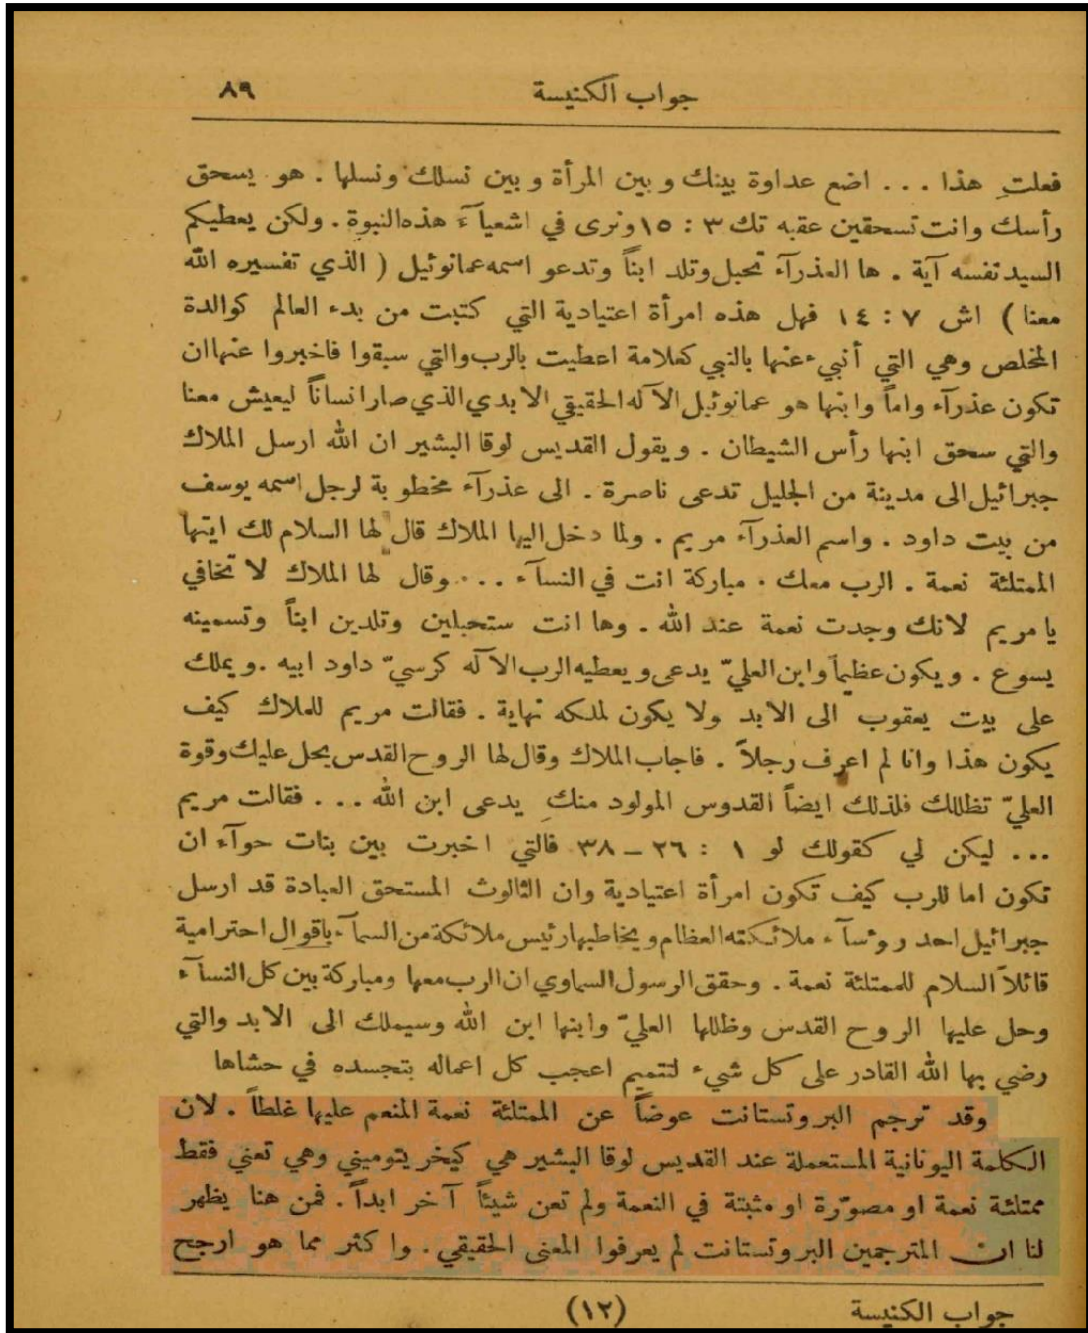 جواب الكنيسة ٨٩
فعلتِ هذا ... اضع عداوة بينك وبين المرأة وبين نسلك ونسلها . هو يسحق
رأسك وانت تسحقين عقبه تك ٣ : ١٥ ونرى في اشعيآء هذه النبوة . ولكن يعطيكم
السيد نفسه آية . ها العذرآء تحبل وتلد ابناً وتدعو اسمه عمانوئيل ( الذي تفسيره الله
معنا ) اش ٧ : ١٤ فهل هذه امرأة اعتيادية التي كتبت من بدء العالم كوالدة
المخلص وهي التي أنبيء عنها بالنبي كعلامة اعطيت بالرب والتي سبقوا فاخبروا عنها ان
تكون عذرآء واماً وابنها هو عمانوئيل الآله الحقيقي الابدي الذي صار انساناً ليعيش معنا
والتي سحق ابنها رأس الشيطان . ويقول القديس لوقا البشير ان الله ارسل الملاك
جبرائيل الى مدينة من الجليل تدعى ناصرة . الى عذرآء مخطوبة لرجل اسمه يوسف
من بيت داود . واسم العذرآء مريم . ولما دخل اليها الملاك قال لها السلام لك ايتها
الممتلئة نعمة . الرب معك . مباركة انت في النسآء ... وقال لها الملاك لا تخافي
يا مريم لانك وجدت نعمة عند الله . وها انت ستحبلين وتلدين ابناً وتسمينه
يسوع . ويكون عظيماً وابن العليّ يدعى ويعطيه الرب الآله كرسيّ داود ابيه . ويملك
على بيت يعقوب الى الابد ولا يكون لملكه نهاية . فقالت مريم للملاك كيف
يكون هذا وانا لم اعرف رجلاً . فاجاب الملاك وقال لها الروح القدس يحل عليك وقوة
العليّ تظللك فلذلك ايضاً القدوس المولود منكِ يدعى ابن الله ... فقالت مريم
... ليكن لي كقولك لو ١ : ٢٦ – ٣٨ فالتي اخبرت بين بنات حوآء ان
تكون اما للرب كيف تكون امرأة اعتيادية وان الثالوث المستحق العبادة قد ارسل
جبرائيل احد روءسآء ملائكته العظام ويخاطبها رئيس ملائكة من السمآء باقوال احترامية
قائلاً السلام للممتلئة نعمة . وحقق الرسول السماوي ان الرب معها ومباركة بين كل النسآء
وحل عليها الروح القدس وظللها العليّ وابنها ابن الله وسيملك الى الابد والتي
رضي بها الله القادر على كل شيء لتتميم اعجب كل اعماله بتجسده في حشاها
وقد ترجم البروتستانت عوضاً عن الممتلئة نعمة المنعم عليها غلطاً . لان
الكلمة اليونانية المستعملة عند القديس لوقا البشير هي كيخريتوميني وهي تعني فقط
ممتلئة نعمة او مصوّرة او مثبتة في النعمة ولم تعن شيئاً آخر ابداً . فمن هنا يظهر
لنا ان المترجمين البروتستانت لم يعرفوا المعنى الحقيقي . واكثر مما هو ارجح
جواب الكنيسة (١٢)